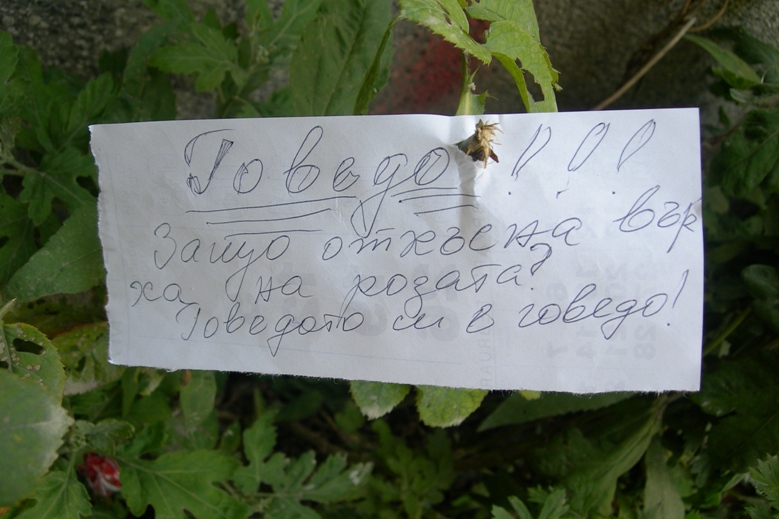 Говедо!!!
Защо откъсна вър
ха на розата?
Говедото си е говедо!